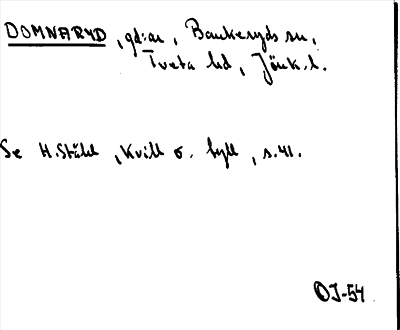 DOMNARYD, gd:ar, Bankeryds sn,
Tveta hd, Jönk. l.
Se H. Ståhl, Kvill o. fyll, s. 41.
OJ-54